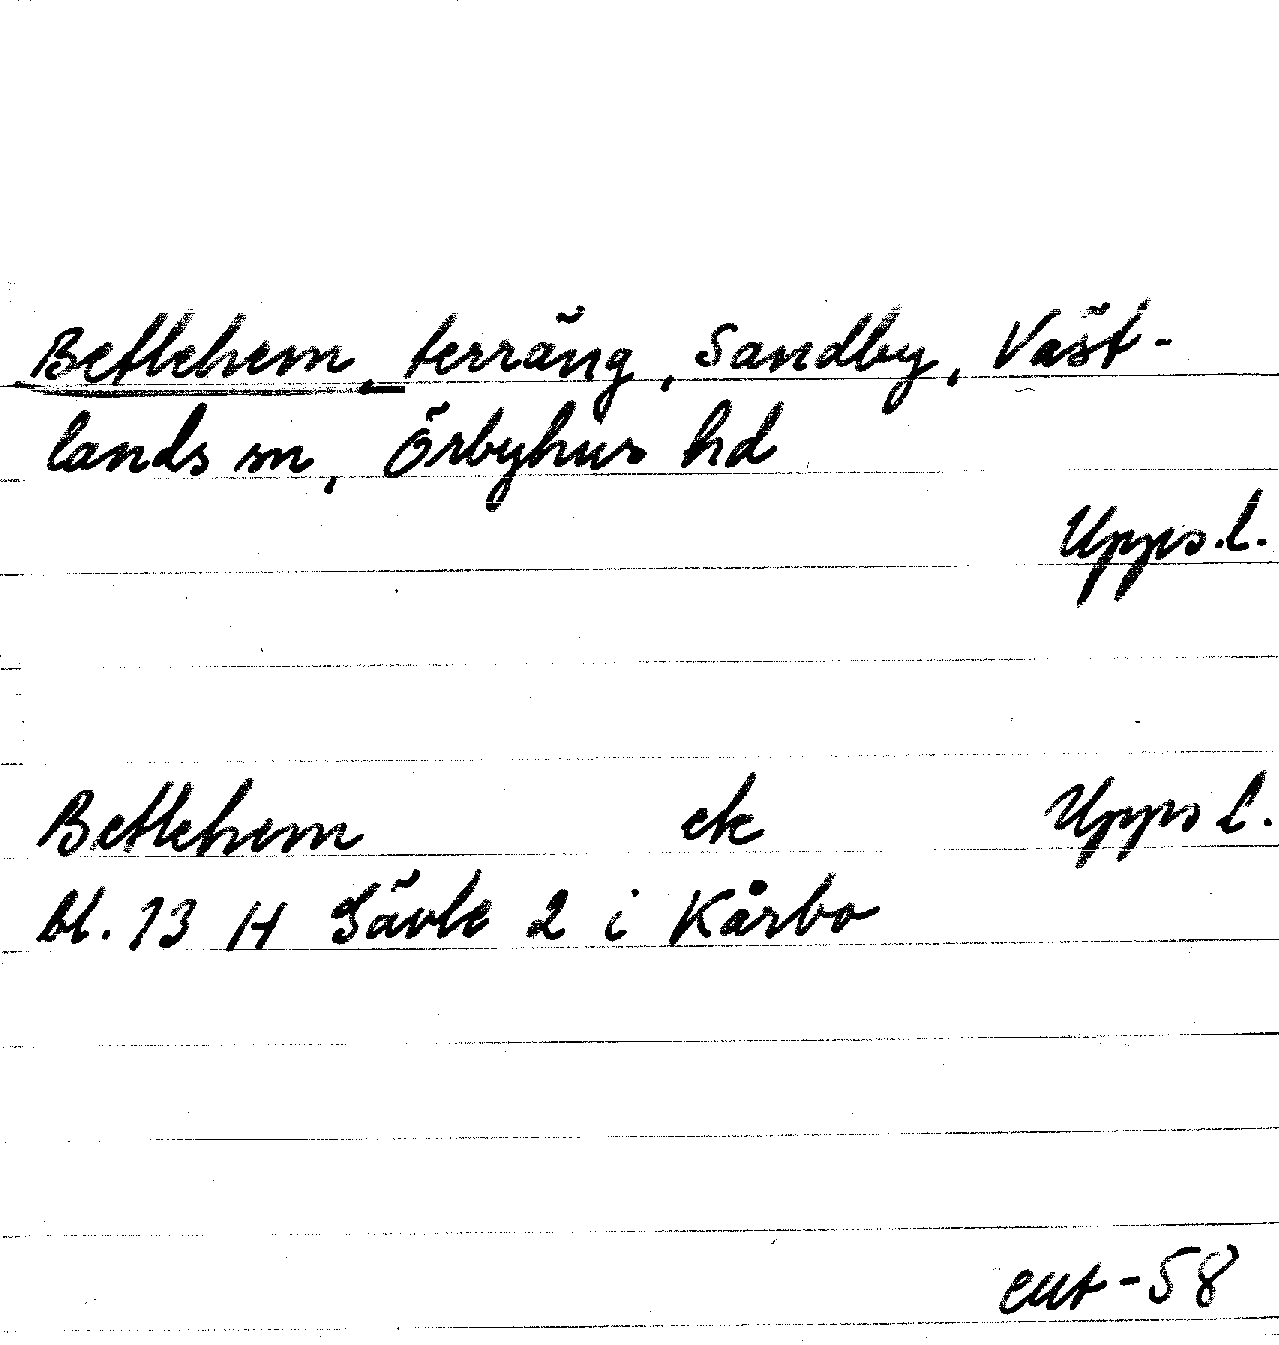 Betlehem, terräng, Sandby, Väst-
lands sn, Örbyhus hd
Upps.l.
Betlehem ek Upps l.
bl. 13 H Gävle 2 i Kårbo
-58